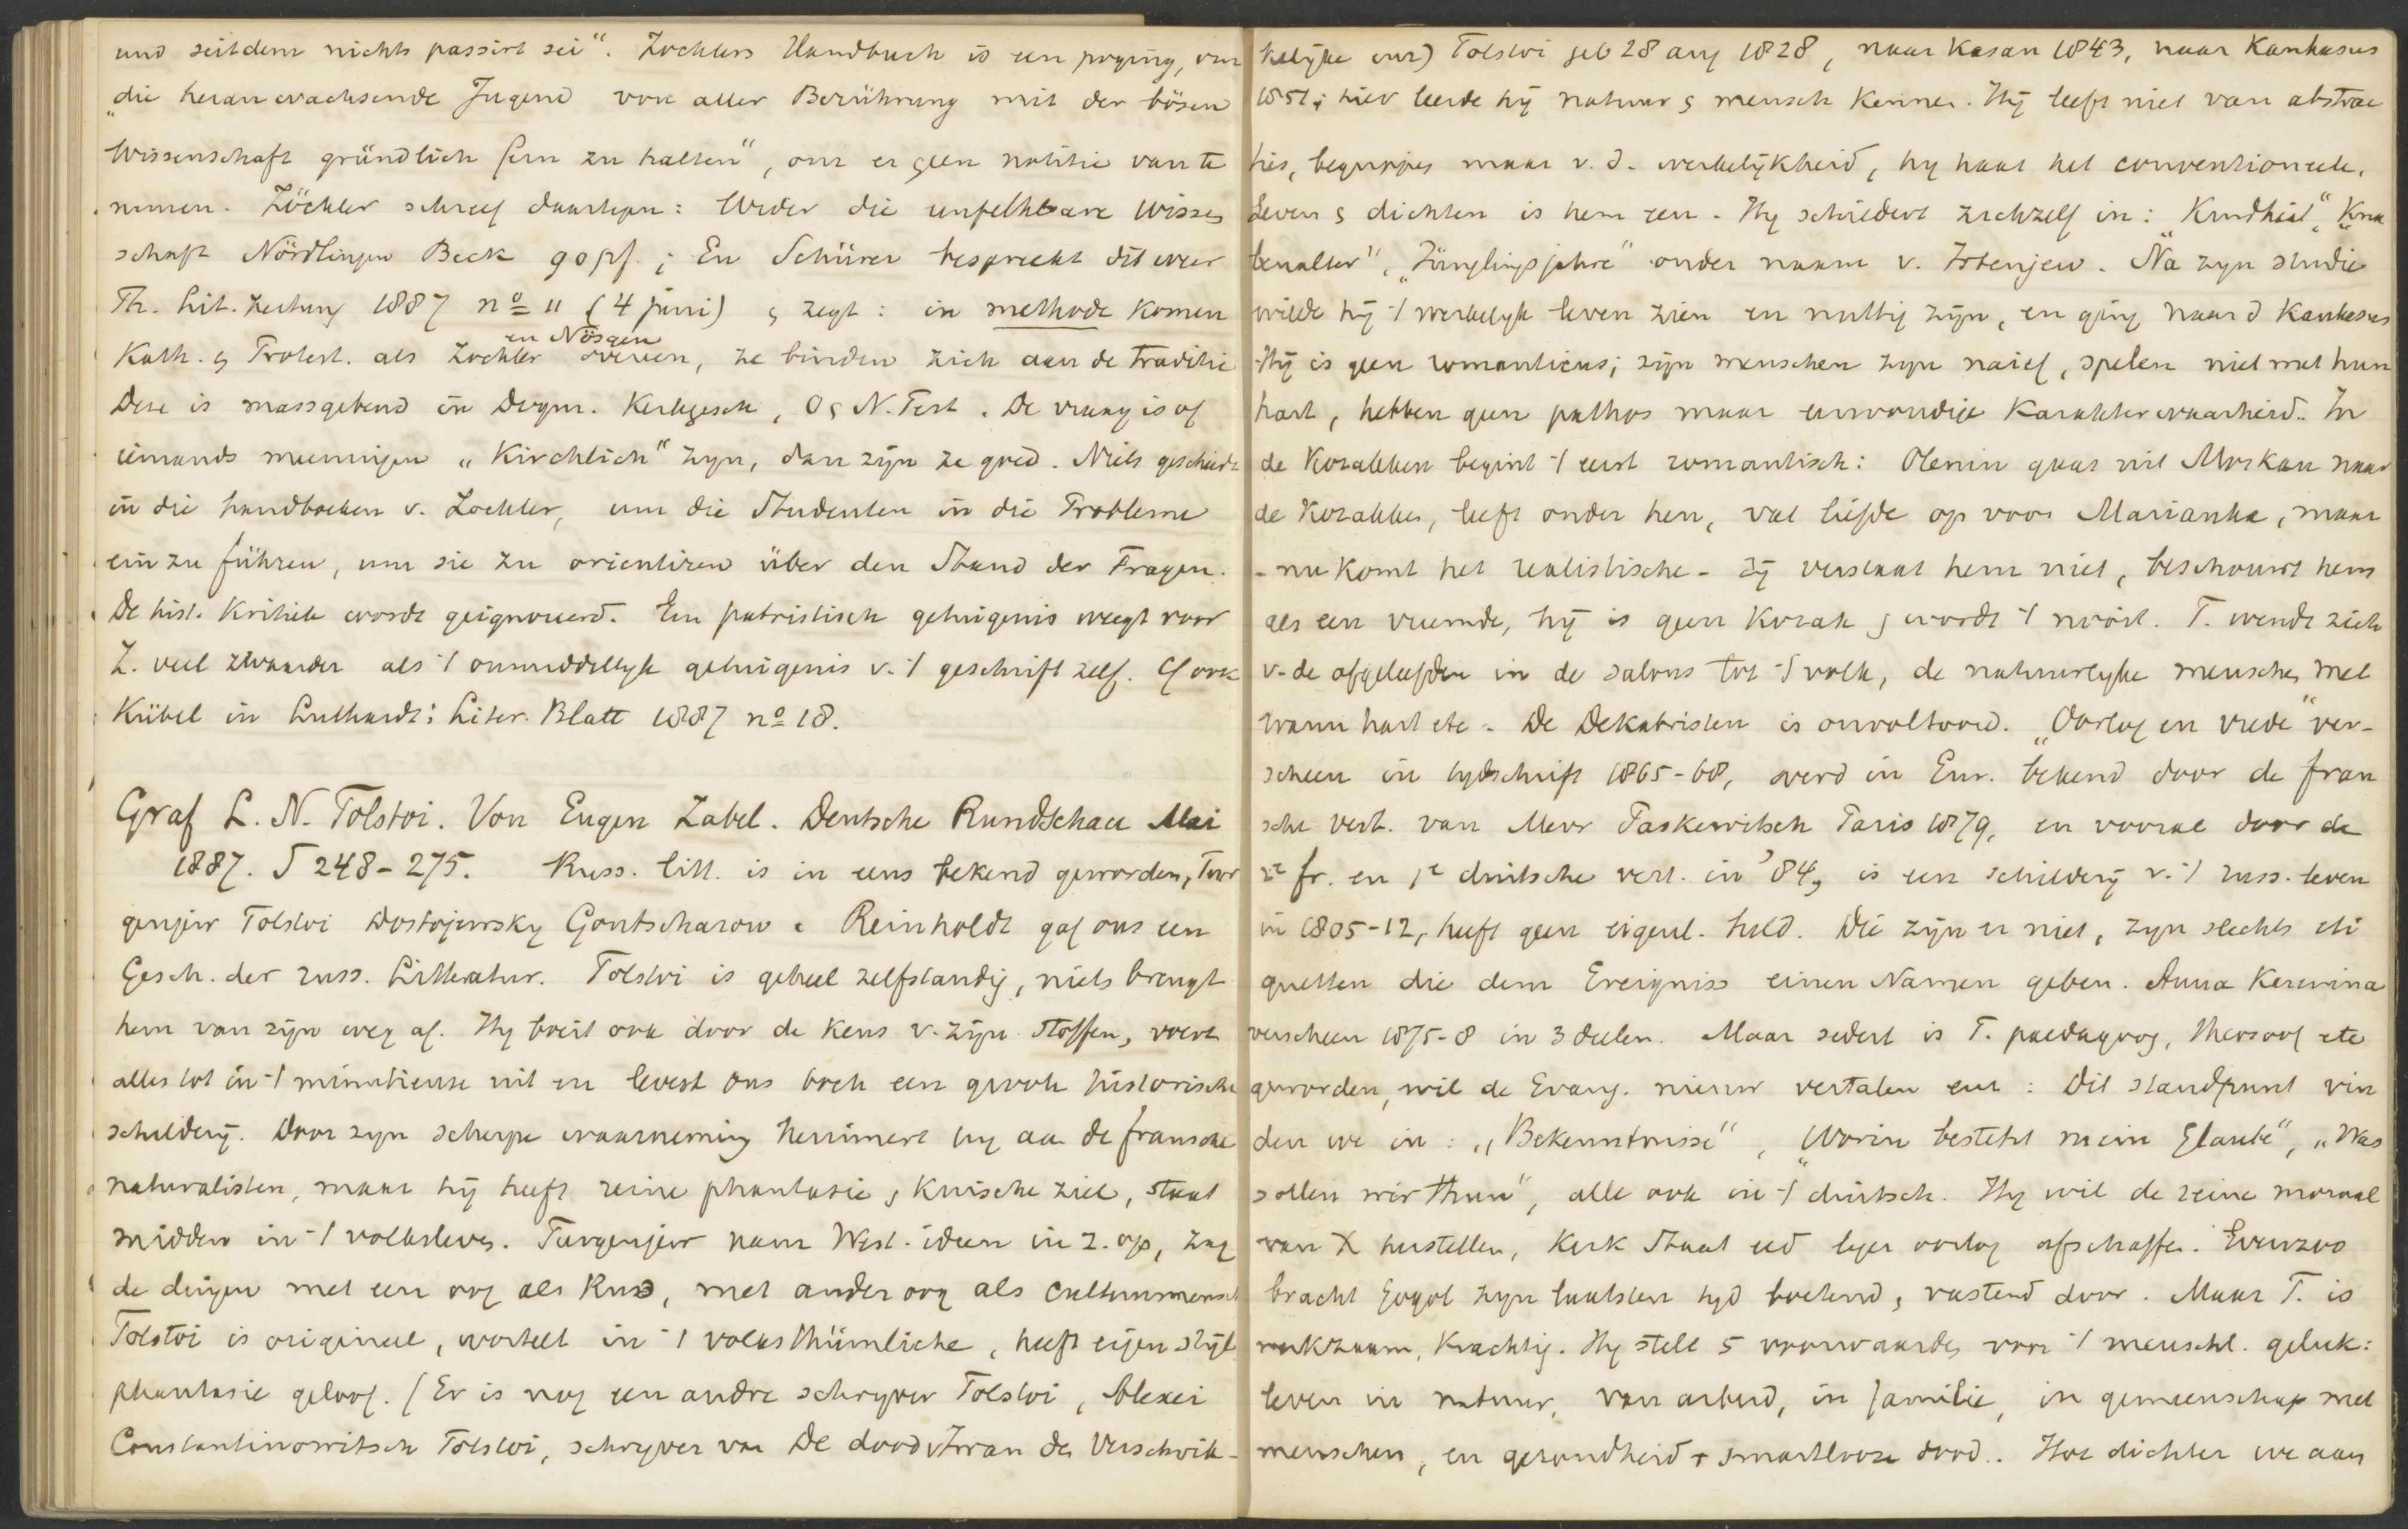 und seitdem nichts passirt sei“. Zöcklers Handbuch is een poging, om
„die heranwachsende Jugend von aller Berührung mit der bösen
Wissenschaft gründlich fern zu halten“, om er geen notitie van te
nemen. Zöckler schreef daartegen: Wider die unfehlbare Wissen
schaft Nördlingen Beck 90 pf.; En Schürer bespreekt dit weer
Th. Lit. Zeitung 1887 no 11 (4 juni) & zegt: in methode komen
en Nösgen
Kath. & Protest. als Zöckler overeen, ze binden zich aan de traditie
Deze is massgebend in Dogm. Kerkgesch, O & N. Test. De vraag is of
iemands meeningen „Kirchlich“ zyn, dan zijn ze goed. Niets geschiedt
in die handboeken v. Zöckler, um die Studenten in die Probleme
ein zu führen, um sie zu orientiren über den Stand der Fragen.
De hist. Kritiek wordt geignoreerd. Een patristisch getuigenis weegt voor
Z. veel zwaarder als 't onmiddellyk getuigenis v. 't geschrift zelf. Cf ook
Kübel in Luthardt's Liter. Blatt 1887 no 18.
Graf L. N. Tolstoi. Von Eugen Zabel. Deutsche Rundschau Mai
1887. S 248-275. Russ. litt. is in eens bekend geworden, Tur
genjew Tolstoi Dostojewsky Gontscharow. Reinholdt gaf ons een
Gesch. der russ. Litteratur. Tolstoi is geheel zelfstandig, niets brengt
hem van zijn weg af. Hy boeit ook door de keus v. zijn stoffen, voert
alles tot in 't minutieuse uit en levert ons toch een groote historische
schildery. Door zyn scherpe waarneming herinnert hy aan de fransche
naturalisten, maar hij heeft reine phantasie, kuische ziel, staat
midden in 't volksleven. Turgenjew nam West. ideen in z. op, zag
de dingen met een oog als Rus, met ander oog als Cultuurmensch
Tolstoi is origineel, wortelt in 't volksthümliche, heeft eigen stijl
phantasie geloof. (Er is nog een andre schryver Tolstoi, Alexei
Constantinowitsch Tolstoi, schryver van De dood v Iwan de Verschrik-
kelijke enz) Tolstoi geb 28 aug 1828, naar Kasan 1843, naar Kaukasus
1851; hier leerde hij natuur & mensch kennen. Hij leeft niet van abstrac
ties, begrippes maar v. d. werkelijkheid, hy haat het conventioneele.
Leven & dichten is hem een. Hy schildert zichzelf in: „Kindheit“, „Kna
benalter“, „Jünglingsjahre“ onder naam v. Irtenjew. Na zyn studie
wilde hij 't werkelyk leven zien en nuttig zijn, en ging naar d Kaukasus
Hij is geen romanticus; zijn menschen zyn naief, spelen niet met hun
hart, hebben geen pathos maar eenvoudige Karakterwaarheid. In
de Kozakken begint 't eerst romantisch: Olenin gaat uit Moskau naar
de Kozakken, leeft onder hen, vat liefde op voor Marianka, maar
- nu komt het realistische - zij verstaat hem niet, beschouwt hem
als een vreemde, hij is geen Kozak & wordt 't nooit. T. wendt zich
v. de afgeleefden in de salons tot 't volk, de natuurlyke menschen met
warm hart etc. De Dekabristen is onvoltooid. „Oorlog en vrede“ ver-
scheen in tydschrift 1865-68, werd in Eur. bekend door de fran
sche vert. van Mevr Paskewitsch Paris 1879, en vooral door de
2e fr. en 1e duitsche vert. in '84, is een schildery v. 't russ. leven
in 1805-12, heeft geen eigenl. held. Die zijn er niet, zyn slechts eti
quetten die dem Ereigniss einen Namen geben. Anna Karenina
verscheen 1875-8 in 3 deelen. Maar sedert is T. paedagoog, theosoof etc
geworden, wil de Evang. nieuw vertalen enz: Dit standpunt vin
den we in: „Bekenntnisse“, „Worin besteht mein Glaube“, „Was
sollen wir thun“, alle ook in 't duitsch. Hy wil de reine moraal
van X herstellen, Kerk Staat eed leger oorlog afschaffen. Evenzoo
bracht Gogol zyn laatsten tyd boetend, vastend door. Maar T. is
werkzaam, krachtig. Hy stelt 5 voorwaarden voor 't menschl. geluk:
leven in natuur, van arbeid, in familie, in gemeenschap met
menschen, en gezondheid + smartlooze dood.. Hoe dichter we aan